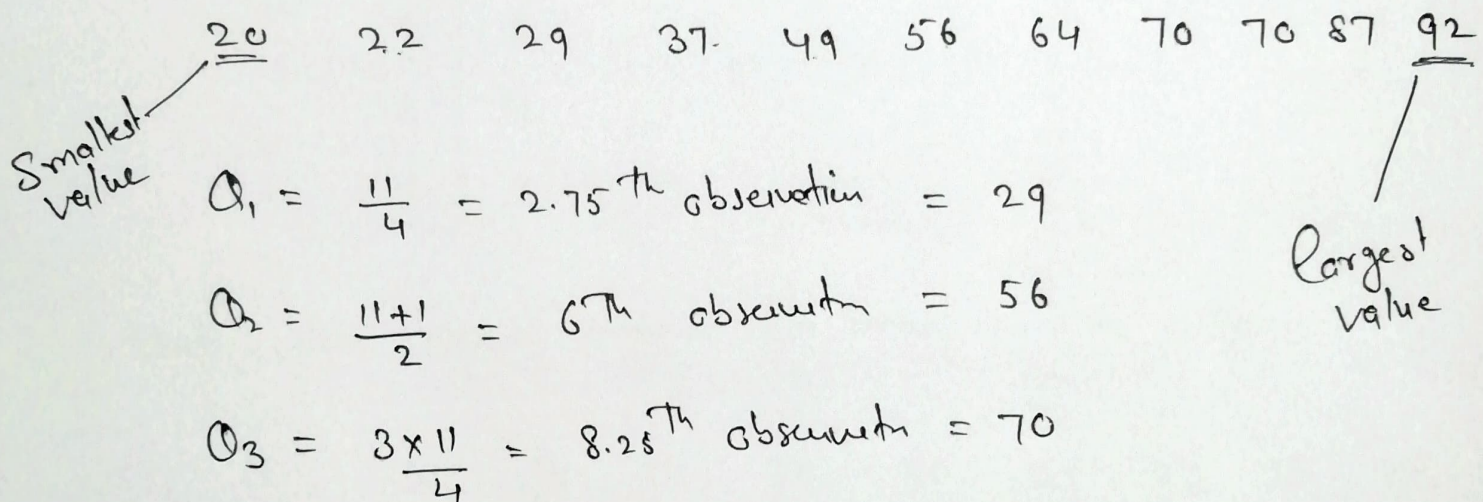 20 22 29 37. 49 56 64 70 70 87 92
Smallest value
largest value
Q₁ = 11/4 = 2.75 th observation = 29
Q₂ = 11+1/2 = 6 Th observatn = 56
Q3 = 3×11/4 = 8.25 Th observatn = 70